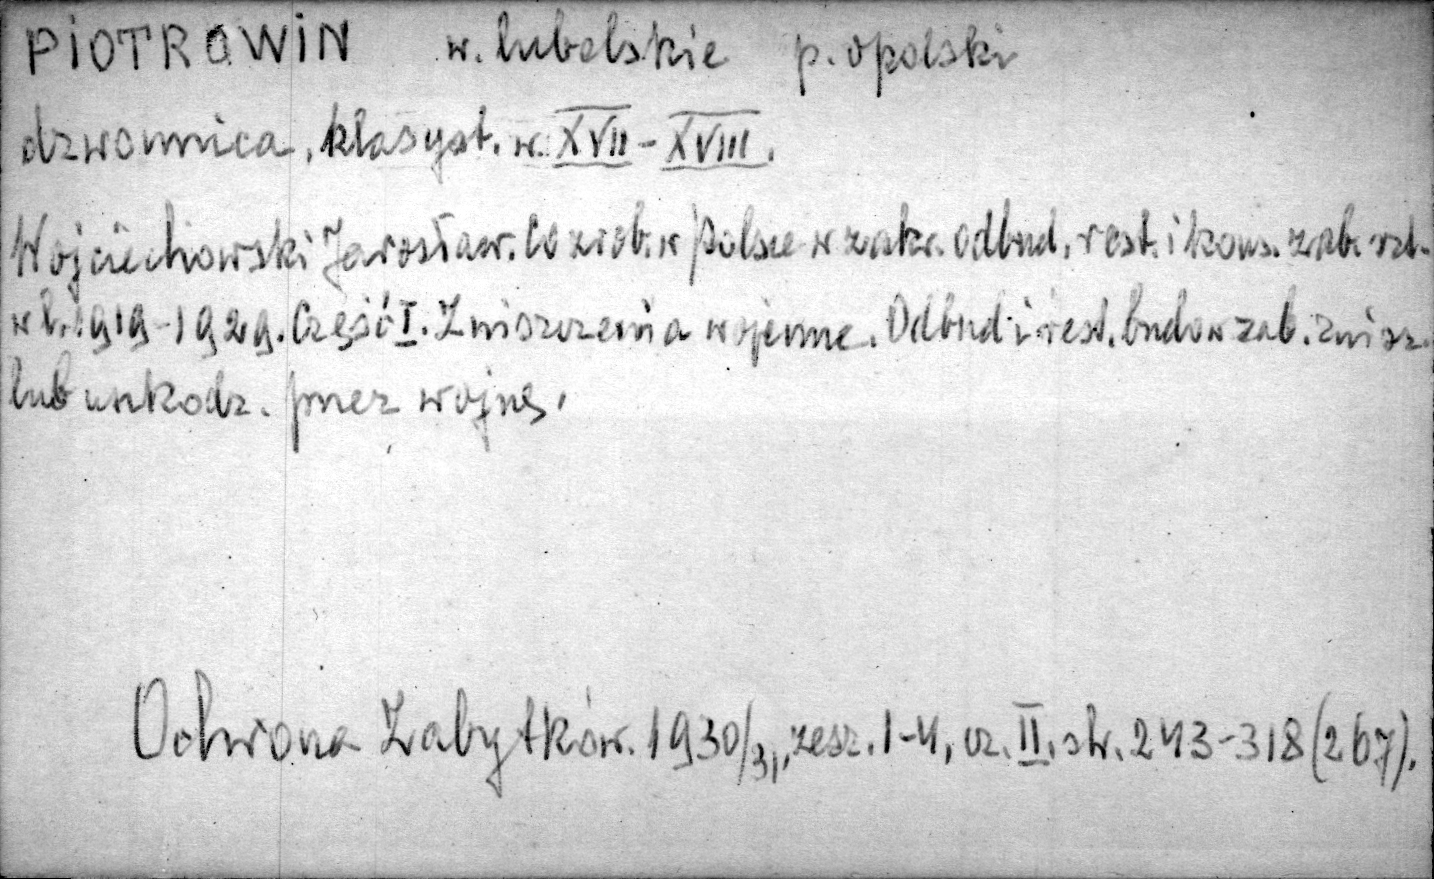 PIOTRAWIN w. lubelskie p. opolski
dzwonnica, klasyst. w. XVII-XVIII.
Wojciechowski Jarosław. Co zrob. w Polsce w zakr. odbud, rest. i kons. zab. szt.
w l. 1919-1929. Część I. Zniszczenia wojenne. Odbud i rest. budow zab. znisz.
lub uszkodz. przez wojnę,
Ochrona Zabytków. 1930/31, zesz. 1-4, cz. II, str. 243-318 (267).